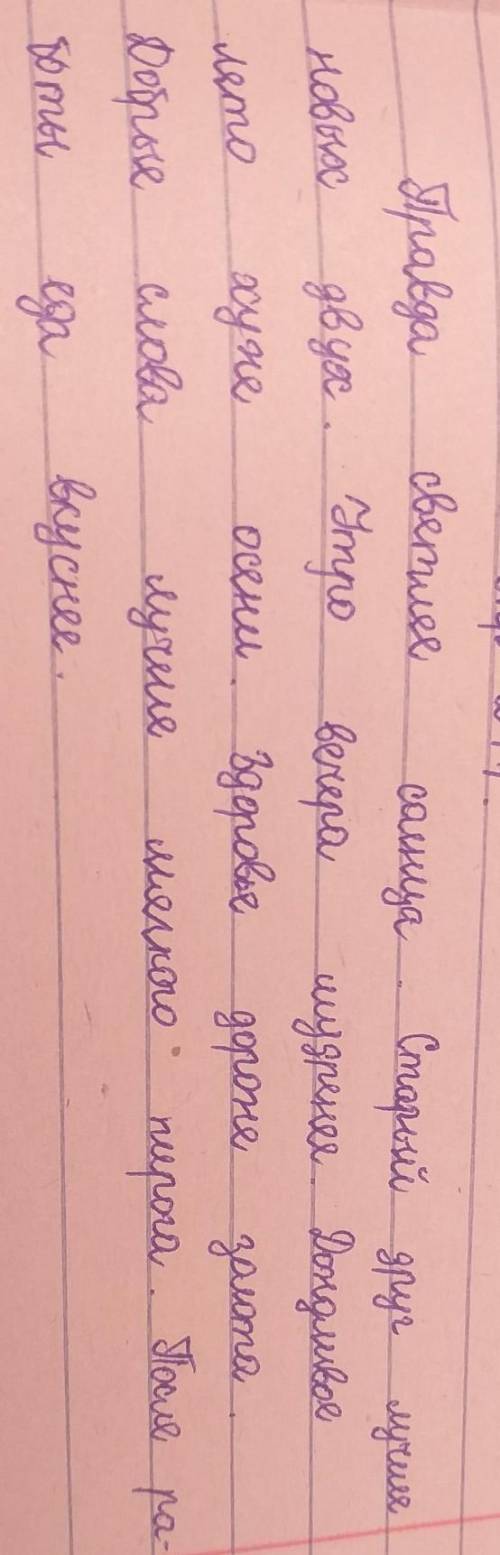 Правда светлее солнца. Старый друг лучше
новых двух. Утро вечера мудренее. Дождливое
лето хуже осени. Здоровье дороже золота.
Добрые слова лучше мягкого пирога. После ра-
боты еда вкуснее.